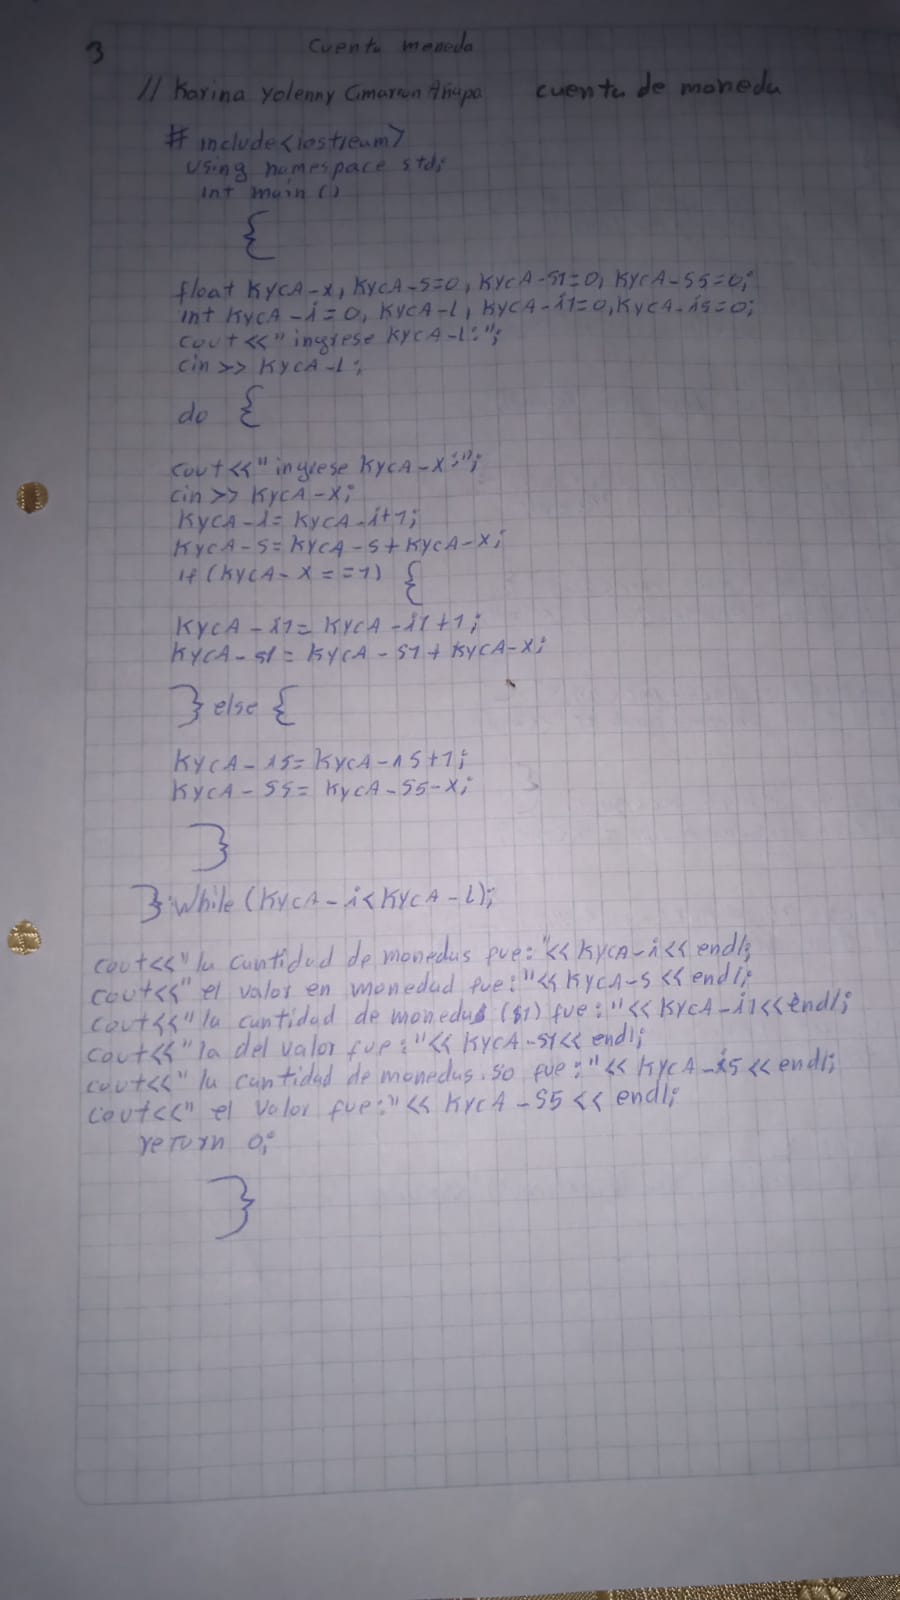 3 Cuenta moneda
// Karina Yolenny Cimarron Añapa cuenta de moneda
# include <iostream>
using namespace std;
int main ()
{
float KYCA-x, KYCA-S=0, KYCA-S1=0, KYCA-S5=0;
int KYCA-i=0, KYCA-L, KYCA-i1=0, KYCA-i5=0;
cout <<"ingrese KYCA-L:";
cin >> KYCA-L;
do {
cout <<"ingrese KYCA-X:";
cin >> KYCA-X;
KYCA-i= KYCA-i+1;
KYCA-S= KYCA-S+KYCA-X;
if (KYCA-X==1) {
KYCA-i1= KYCA-i1+1;
KYCA-S1= KYCA-S1+ KYCA-X;
} else {
KYCA-i5= KYCA-i5+1;
KYCA-S5= KYCA-S5-X;
}
} while (KYCA-i<KYCA-L);
cout<<"la cantidad de monedas fue:"<< KYCA-i<< endl;
cout<<"el valor en monedad fue:"<< KYCA-S << endl;
cout<<"la cantidad de monedas ($1) fue:"<< KYCA-i1<<endl;
cout<<"la del valor fue:"<< KYCA-S1<< endl;
cout<<"la cantidad de monedas.50 fue:"<< KYCA-i5 << endl;
cout<<"el valor fue:"<< KYCA-S5 << endl;
return 0;
}